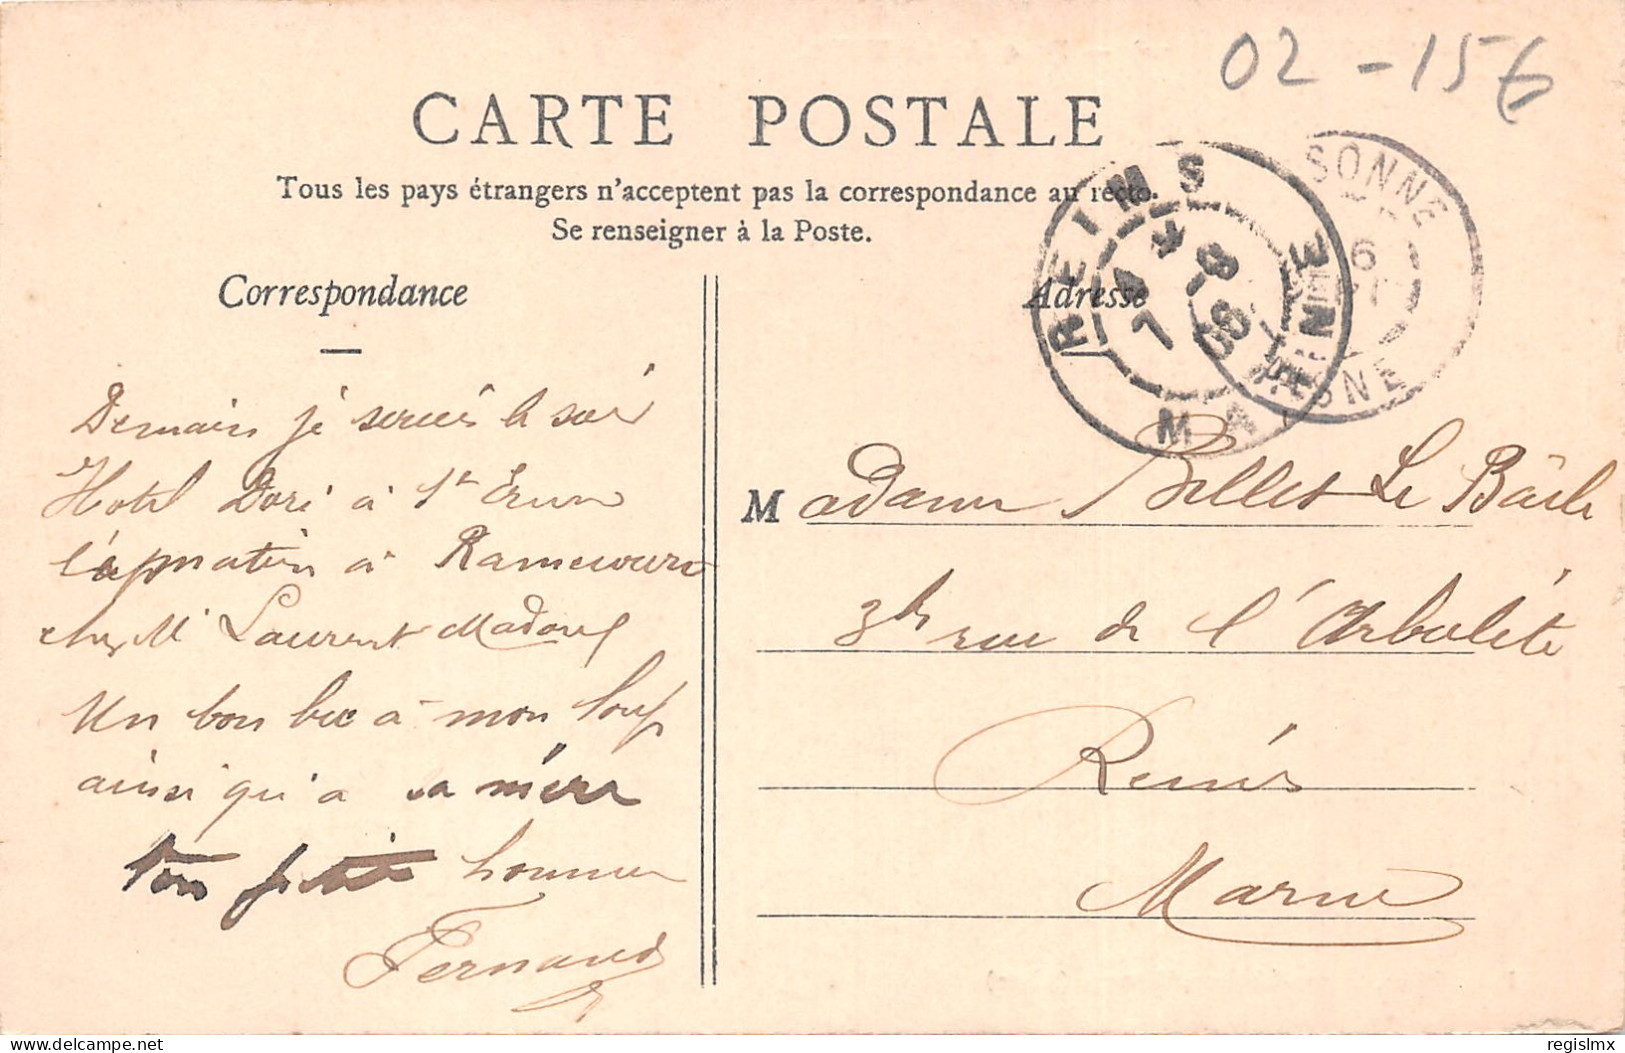 02-156
CARTE POSTALE
Tous les pays étrangers n'acceptent pas la correspondance au recto.
Se renseigner à la Poste.
Correspondance
Adresse
REIMS
MARNE
7 -8
06
SONNE
6
AISNE
Demain je serais le soir
Hotel Dori à St Erme
l'apmatin à Ramecourt
chez Mr Laurent Madoul
Un bon bec à mon loup
ainsi qu'a sa mère
ton petit homme
Fernand
Madame Billet Le Bâcle
3 bis rue de l'Arbalète
Reims
Marne
delcampe.net
regislmx